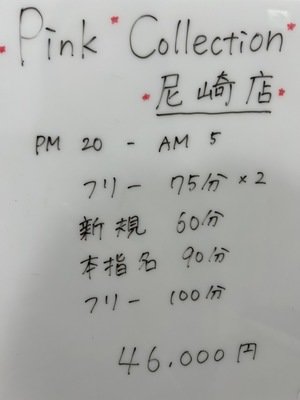 Pink Collection
尼崎店
PM 20 - AM 5
フリー 75分×2
新規 60分
本指名 90分
フリー 100分
46.000円